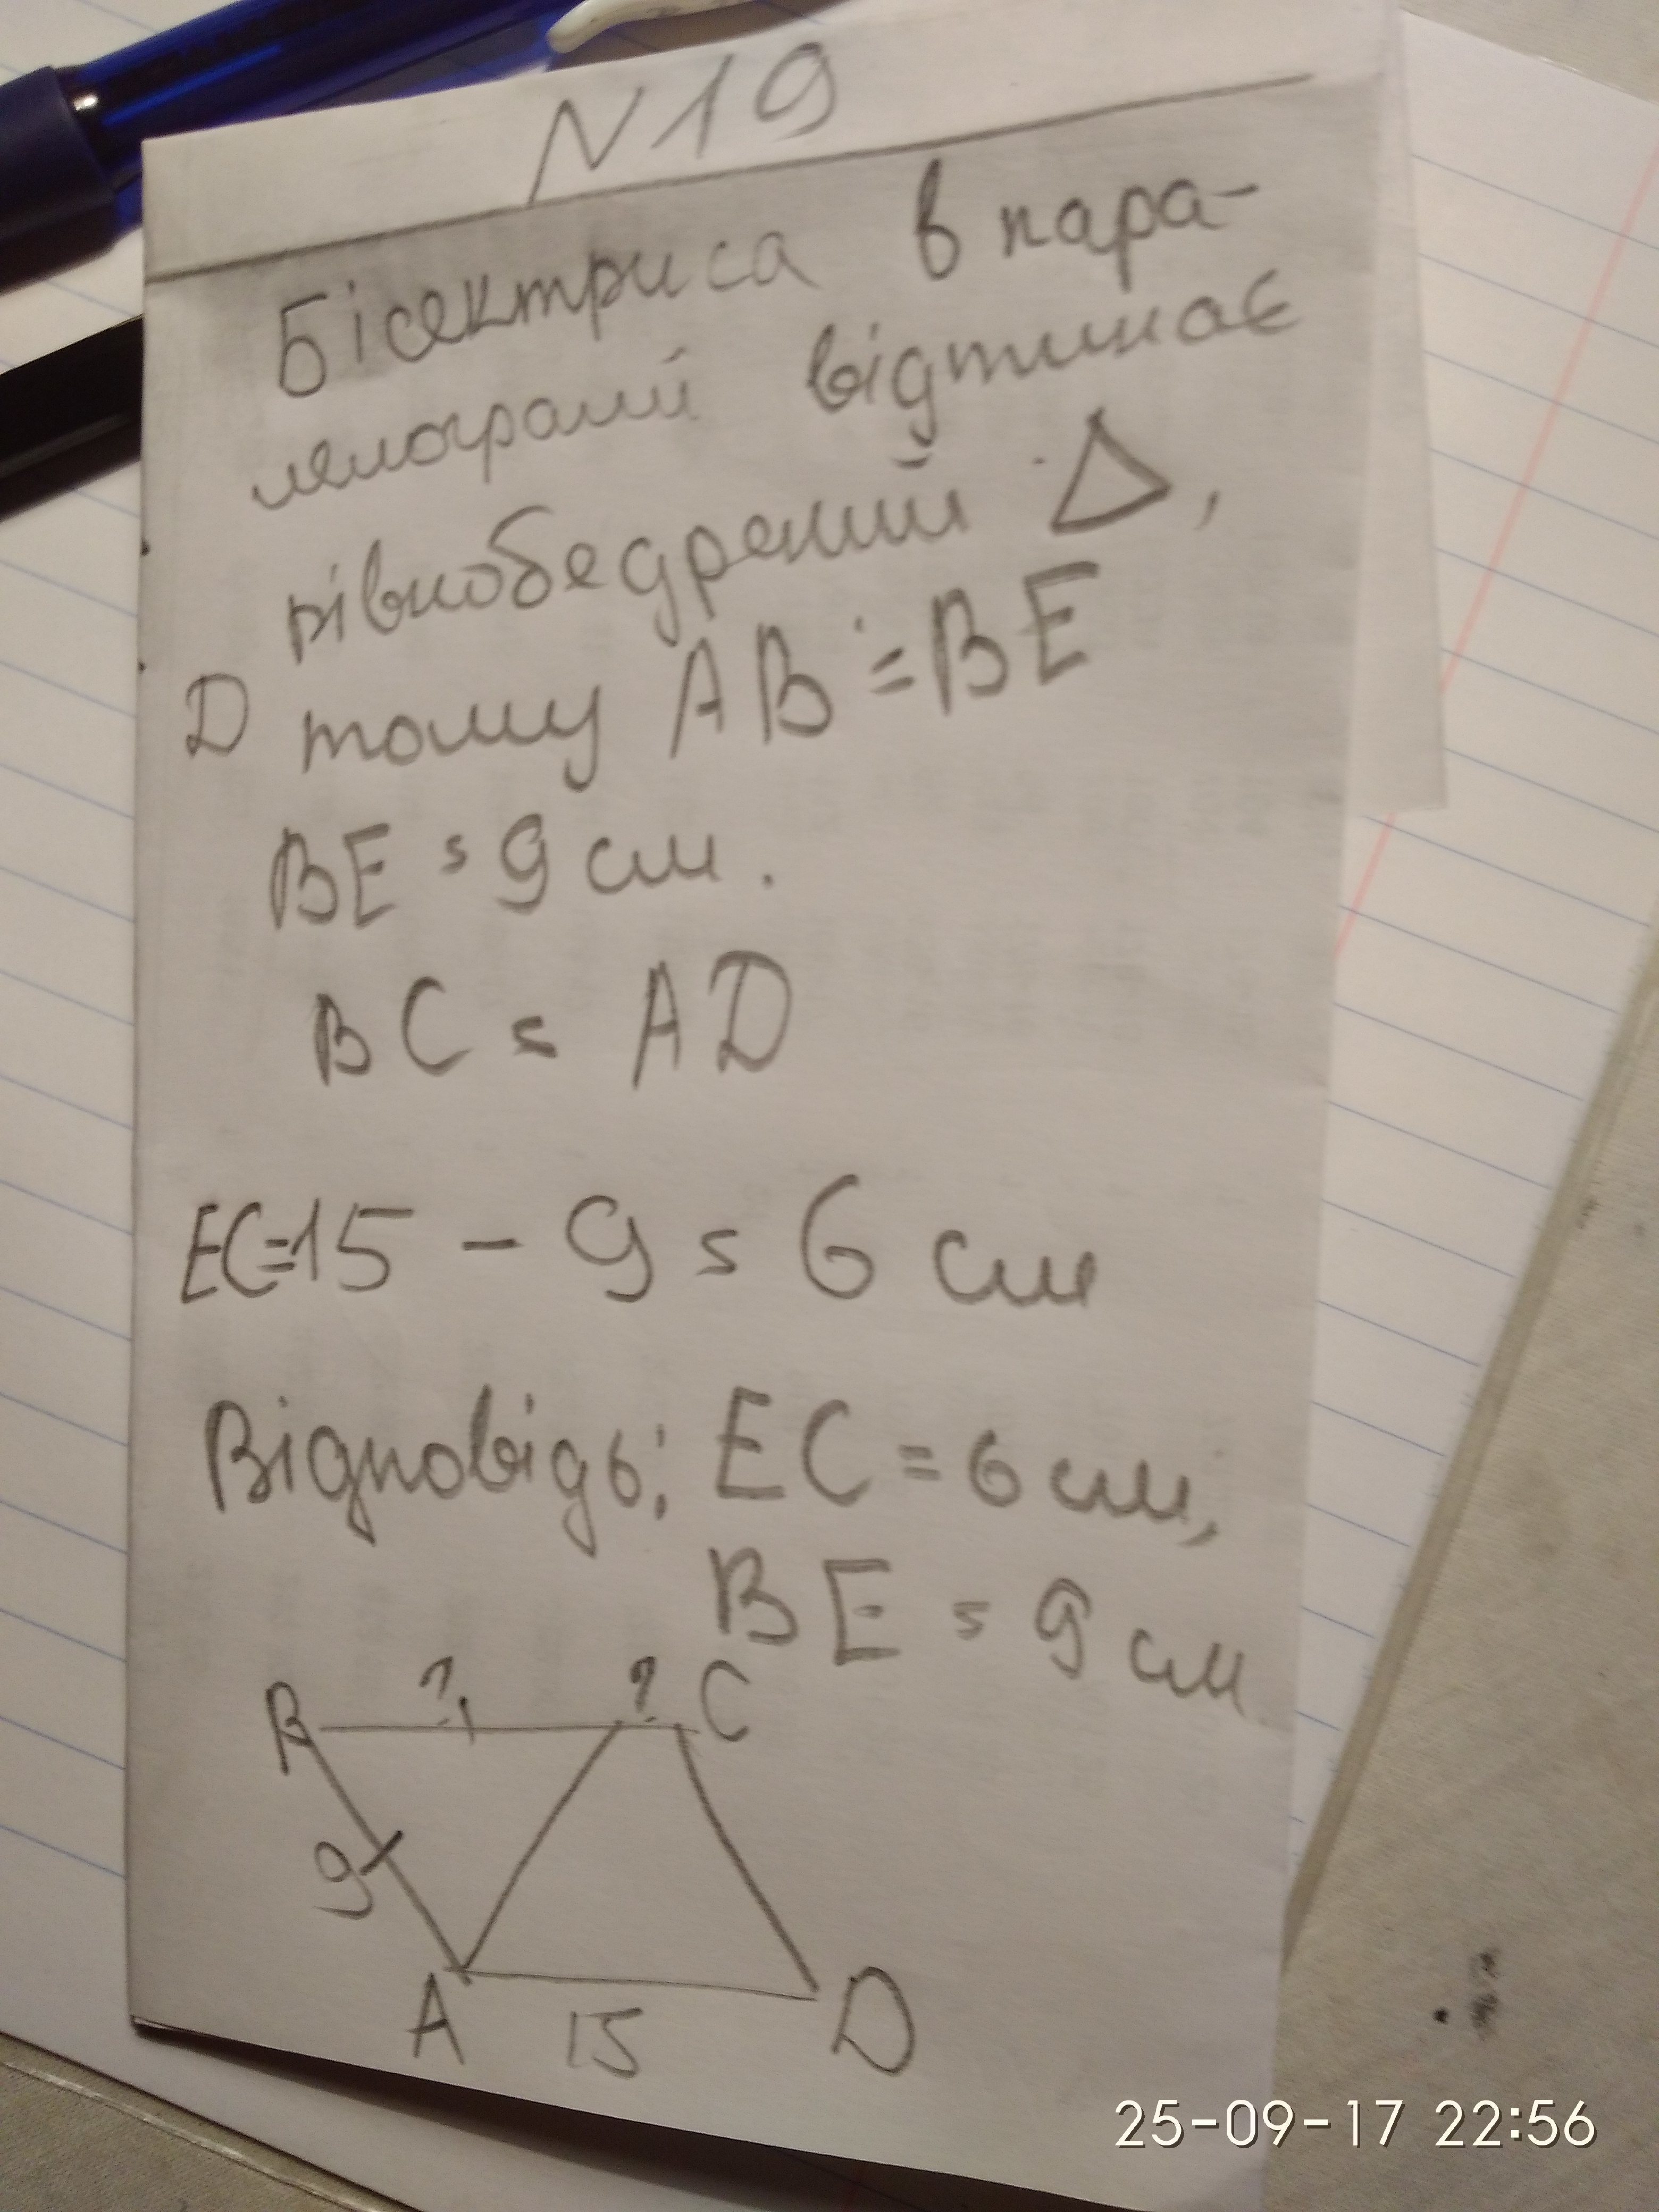 N19
Бісектриса в пара-
лелограмі відтинає
рівнобедрений Δ,
D тому AB = BE
BE = 9 см.
BC = AD
EC=15 - 9 = 6 см
Відповідь: EC = 6 см,
BE = 9 см
B ? ? C
9
A 15 D
25-09-17 22:56